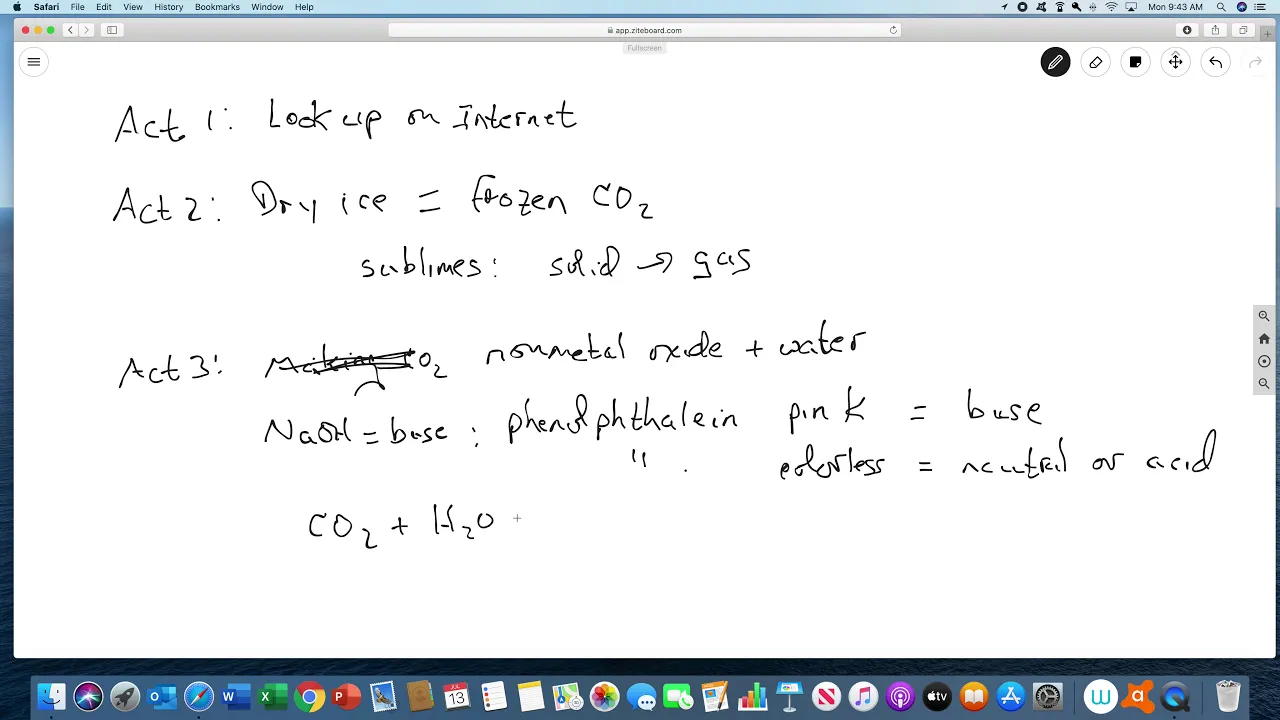 Safari File Edit View History Bookmarks Window Help Mon 9:43 AM
app.ziteboard.com
Fullscreen
Act 1: Look up on Internet
Act 2: Dry ice = frozen CO2
sublimes: solid → gas
Act 3: Making CO2 nonmetal oxide + water
NaOH = base : phenolphthalein pink = base
" . colorless = neutral or acid
CO2 + H2O
JUL 13
W X P
tv
W a